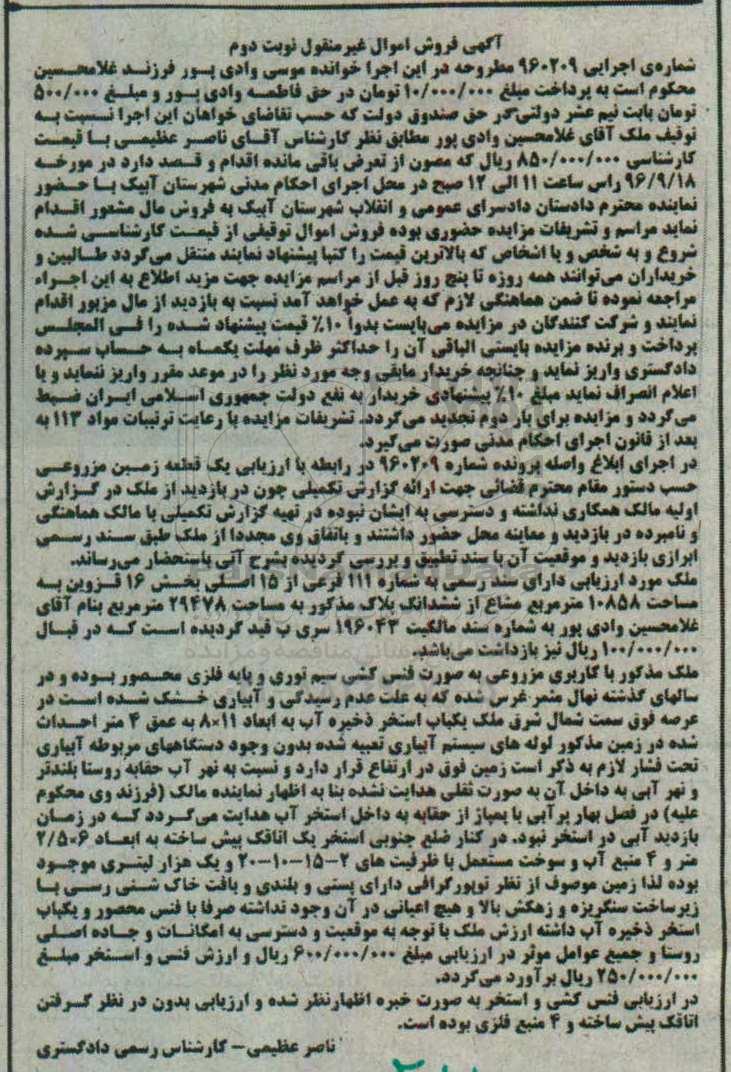 آگهی فروش اموال غیرمنقول نوبت دوم
شماره‌ی اجرایی ۹۶۰۲۰۹ مطروحه در این اجرا خوانده موسی وادی پور فرزند غلامحسین
محکوم است به پرداخت مبلغ ۱۰/۰۰۰/۰۰۰ تومان در حق فاطمه وادی پور و مبلغ ۵۰۰/۰۰۰
تومان بابت نیم عشر دولتی در حق صندوق دولت که حسب تقاضای خواهان این اجرا نسبت به
توقیف ملک آقای غلامحسین وادی پور مطابق نظر کارشناس آقای ناصر عظیمی با قیمت
کارشناسی ۸۵۰/۰۰۰/۰۰۰ ریال که مصون از تعرض باقی مانده اقدام و قصد دارد در مورخه
۹۶/۹/۱۸ راس ساعت ۱۱ الی ۱۲ صبح در محل اجرای احکام مدنی شهرستان آبیک با حضور
نماینده محترم دادستان دادسرای عمومی و انقلاب شهرستان آبیک به فروش مال مشعور اقدام
نماید مراسم و تشریفات مزایده حضوری بوده فروش اموال توقیفی از قیمت کارشناسی شده
شروع و به شخص و یا اشخاص که بالاترین قیمت را کتبا پیشنهاد نمایند منتقل می‌گردد طالبین و
خریداران می‌توانند همه روزه تا پنج روز قبل از مراسم مزایده جهت مزید اطلاع به این اجراء
مراجعه نموده تا ضمن هماهنگی لازم که به عمل خواهد آمد نسبت به بازدید از مال مزبور اقدام
نمایند و شرکت کنندگان در مزایده می‌بایست بدوا ۱۰٪ قیمت پیشنهاد شده را فی المجلس
پرداخت و برنده مزایده بایستی الباقی آن را حداکثر ظرف مهلت یکماه به حساب سپرده
دادگستری واریز نماید و چنانچه خریدار مابقی وجه مورد نظر را در موعد مقرر واریز ننماید و یا
اعلام انصراف نماید مبلغ ۱۰٪ پیشنهادی خریدار به نفع دولت جمهوری اسلامی ایران ضبط
می‌گردد و مزایده برای بار دوم تجدید می‌گردد. تشریفات مزایده با رعایت ترتیبات مواد ۱۱۳ به
بعد از قانون اجرای احکام مدنی صورت می‌گیرد.
در اجرای ابلاغ واصله پرونده شماره ۹۶۰۲۰۹ در رابطه با ارزیابی یک قطعه زمین مزروعی
حسب دستور مقام محترم قضائی جهت ارائه گزارش تکمیلی چون در بازدید از ملک در گزارش
اولیه مالک همکاری نداشته و دسترسی به ایشان نبوده در تهیه گزارش تکمیلی با مالک هماهنگی
و نامبرده در بازدید و معاینه محل حضور داشتند و باتفاق وی مجددا از ملک طبق سند رسمی
ابرازی بازدید و موقعیت آن با سند تطبیق و بررسی گردیده بشرح آتی باستحضار می‌رساند.
ملک مورد ارزیابی دارای سند رسمی به شماره ۱۱۱ فرعی از ۱۵ اصلی بخش ۱۶ قزوین به
مساحت ۱۰۸۵۸ مترمربع مشاع از ششدانگ پلاک مذکور به مساحت ۲۹۴۷۸ مترمربع بنام آقای
غلامحسین وادی پور به شماره سند مالکیت ۱۹۶۰۴۳ سری ب قید گردیده است که در قبال
۱۰۰/۰۰۰/۰۰۰ ریال نیز بازداشت می‌باشد.
ملک مذکور با کاربری مزروعی به صورت فنس کشی سیم توری و پایه فلزی محصور بوده و در
سالهای گذشته نهال مثمر غرس شده که به علت عدم رسیدگی و آبیاری خشک شده است در
عرصه فوق سمت شمال شرق ملک یکباب استخر ذخیره آب به ابعاد ۱۱×۸ به عمق ۴ متر احداث
شده در زمین مذکور لوله های سیستم آبیاری تعبیه شده بدون وجود دستگاههای مربوطه آبیاری
تحت فشار لازم به ذکر است زمین فوق در ارتفاع قرار دارد و نسبت به نهر آب حقابه روستا بلندتر
و نهر آبی به داخل آن به صورت ثقلی هدایت نشده بنا به اظهار نماینده مالک (فرزند وی محکوم
علیه) در فصل بهار پرآبی با پمپاژ از حقابه به داخل استخر آب هدایت می‌گردد که در زمان
بازدید آبی در استخر نبود. در کنار ضلع جنوبی استخر یک اتاقک پیش ساخته به ابعاد ۶×۲/۵
متر و ۴ منبع آب و سوخت مستعمل با ظرفیت های ۲-۱۵-۱۰-۲۰ و یک هزار لیتری موجود
بوده لذا زمین موصوف از نظر توپورگرافی دارای پستی و بلندی و بافت خاک شنی رسی با
زیرساخت سنگریزه و زهکش بالا و هیچ اعیانی در آن وجود نداشته صرفا با فنس محصور و یکباب
استخر ذخیره آب داشته ارزش ملک با توجه به موقعیت و دسترسی به امکانات و جاده اصلی
روستا و جمیع عوامل موثر در ارزیابی مبلغ ۶۰۰/۰۰۰/۰۰۰ ریال و ارزش فنس و استخر مبلغ
۲۵۰/۰۰۰/۰۰۰ ریال برآورد می‌گردد.
در ارزیابی فنس کشی و استخر به صورت خبره اظهارنظر شده و ارزیابی بدون در نظر گرفتن
اتاقک پیش ساخته و ۴ منبع فلزی بوده است.
ناصر عظیمی - کارشناس رسمی دادگستری